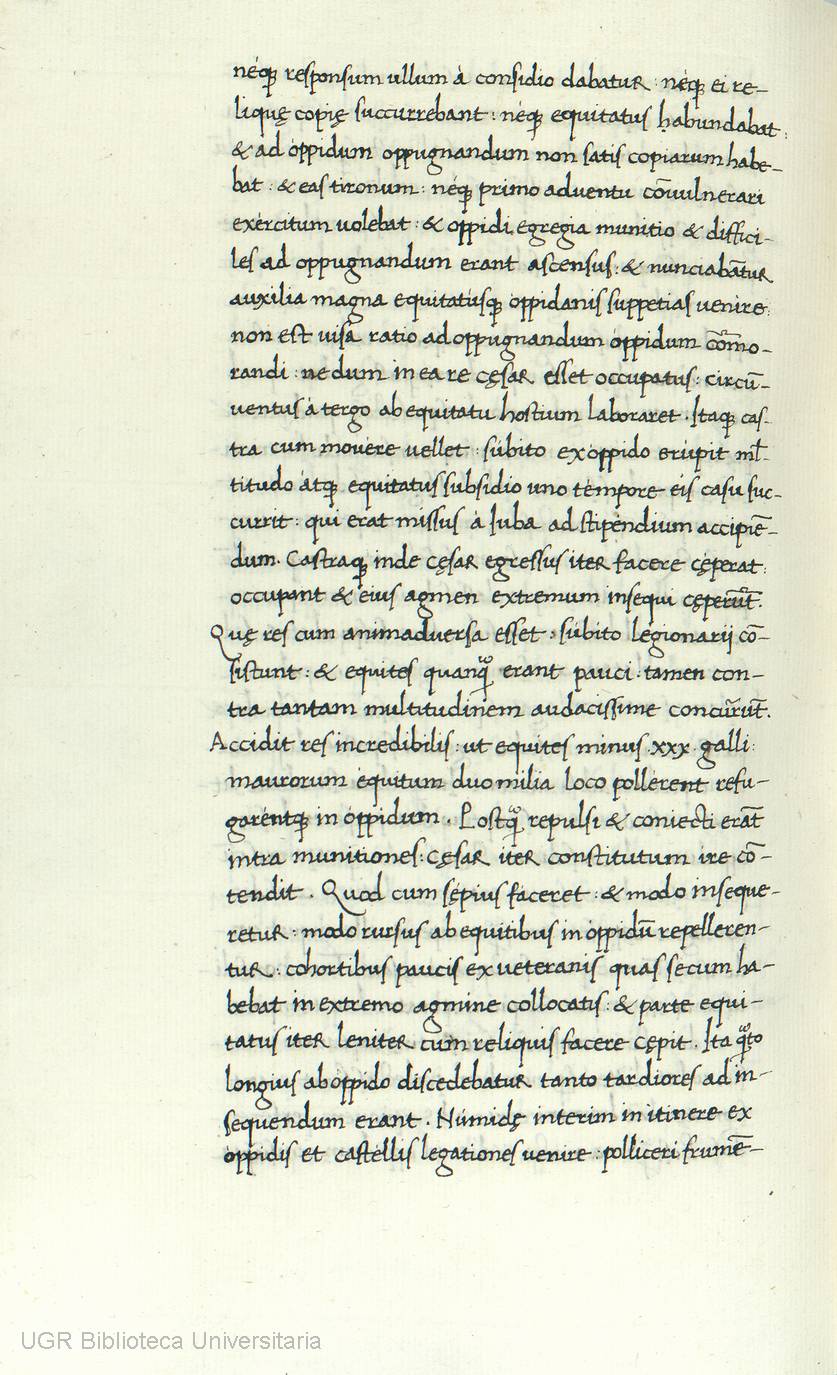 néq; responsum ullum à considio dabatur : néq; ei re-
liquę copię succurrebant : néq; equitatus habundabat :
& ad óppidum oppugnandum non satis copiarum habe-
bat : & eas tironum : néq; primo aduentu cōuulnerari
exércitum uolebat : & oppidi egregia munitio & diffici-
les ad oppugnandum erant ascensus : & nunciabāt̄ur
auxilia magna equitatúsq; óppidanis suppetias uenire :
non est uisa ratio ad oppugnandum óppidum cōmo-
randi : ne dum in ea re cęsar esset occupatus : circū-
uentus à tergo ab equitatu hostium laboraret . Itaq; cas-
tra cum mouere uellet : súbito ex óppido erúpit ml̄-
titudo átq; equitatus subsidio uno témpore eis casu suc-
currit : qui erat missus à Iuba ad stipéndium accipiē-
dum . Castraq; inde cęsar egressus iter facere cęperat :
occupant & eius agmen extremum insequi cęperūt̄ .
Quę res cum animaduersa esset : súbito legionarij cō-
sistunt : & equites quanq̄ erant pauci : tamen con-
tra tantam multitudinem audacissime concūrūt̄ .
Accidit res incredibilis : ut equites minus .xxx. galli :
maurorum équitum duo milia loco pollerent refu-
garéntq; in óppidum . Postq̄ repulsi & coniecti erāt̄
intra munitiones : cęsar iter constitutum ire cō-
tendit . Quod cum sępius faceret : & modo inseque-
retur : modo rursus ab equitibus in óppidū repelleren-
tur : cohortibus paucis ex ueteranis quas secum ha-
bebat in extremo agmine collocatis : & parte equi-
tatus iter leniter cum reliquis facere cępit . Ita q̄to
longius ab óppido discedebatur tanto tardiores ad in-
sequendum erant . Númidę interim in itinere ex
óppidis et castellis legationes uenire : polliceri frumē-
UGR Biblioteca Universitaria